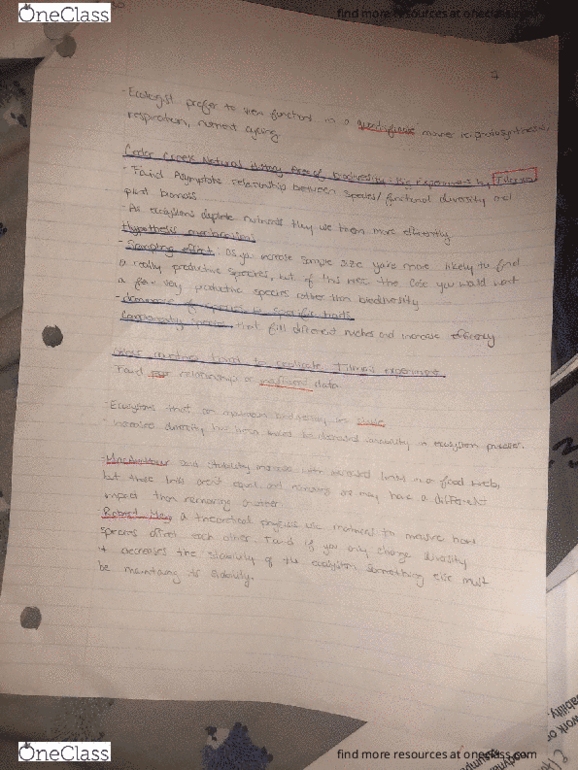 OneClass
find more resources at oneclass.com
- Ecologist prefer to view functions in a manner ie photosynthesis,
respiration, nutrient cycling
Cedar Creek Natural History Area Biodiversity Experiment by Tilman
- Found Asymptote relationship between species/functional diversity and
plant biomass
- As ecosystems deplete nutrients they use them more efficiently
Hypothesis mechanisms
- Sampling effect: as you increase sample size your more likely to find
a really productive species, but if this were the case you would want
a few very productive species rather than biodiversity
- dominance of species specific traits
Complementary species, that fill different niches and increase efficiency
countries to replicate Tilman's experiment
Found relationship or data
- Ecosystems that are
- increased diversity has been to decreased in ecosystem processes.
- MacArthur said stability increase with increased links in a food web,
but these links aren't equal and removing one may have a different
impact than removing another
Robert May, a theoretical use to measure how
species affect each other. Found if you only change diversity
it decreases the stability of the ecosystem something else must
be maintaining its stability.
OneClass
find more resources at oneclass.com